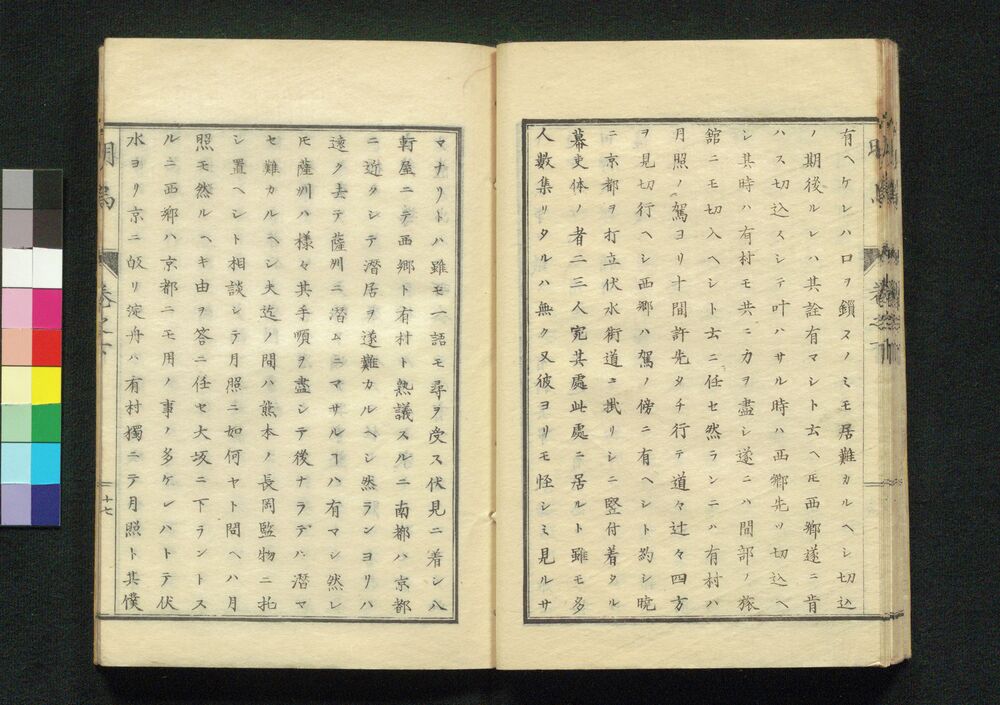 有ヘケレハ口ヲ鎖スノミモ居難カルヘシ切込
ノ期後ルレハ其詮有マシト云ヘ𪜈西郷遂ニ肯
ハス切込スシテ叶ハサル時ハ西郷先ツ切込ヘ
シ其時ハ有村モ共ニ力ヲ盡シ遂ニハ間部ノ旅
舘ニモ切入ヘシト云ニ任セ然ランニハ有村ハ
月照ノ駕ヨリ十間許先タチ行テ道々辻々四方
ヲ見切行ヘシ西郷ハ駕ノ傍ニ有ヘシト約シ曉
ニ京都ヲ打立伏水街道ニ掛リシニ竪付着タル
幕吏体ノ者二三人宛其處此處ニ居ルト雖モ多
人數集リタルハ無ク又彼ヨリモ怪シミ見ルサ
マナリトハ雖モ一語モ尋ヲ受ス伏見ニ着シ八
軒屋ニテ西郷ト有村ト熟議スルニ南都ハ京都
ニ近クシテ潛居ヲ遂難カルヘシ然ランヨリハ
遠ク去テ薩州ニ潛ムニマサルヿハ有マシ然レ
𪜈薩州ハ様々其手順ヲ盡シテ後ナラデハ潛マ
セ難カルヘシ夫迄ノ間ハ熊本ノ長岡監物ニ托
シ置ヘシト相談シテ月照ニ如何ヤト問ヘハ月
照モ然ルヘキ由ヲ答ニ任セ大坂ニ下ラントス
ルニ西郷ハ京都ニモ用ノ事ノ多ケレハトテ伏
水ヨリ京ニ皈リ淀舟ハ有村獨ニテ月照ト其僕
卷之下
十七